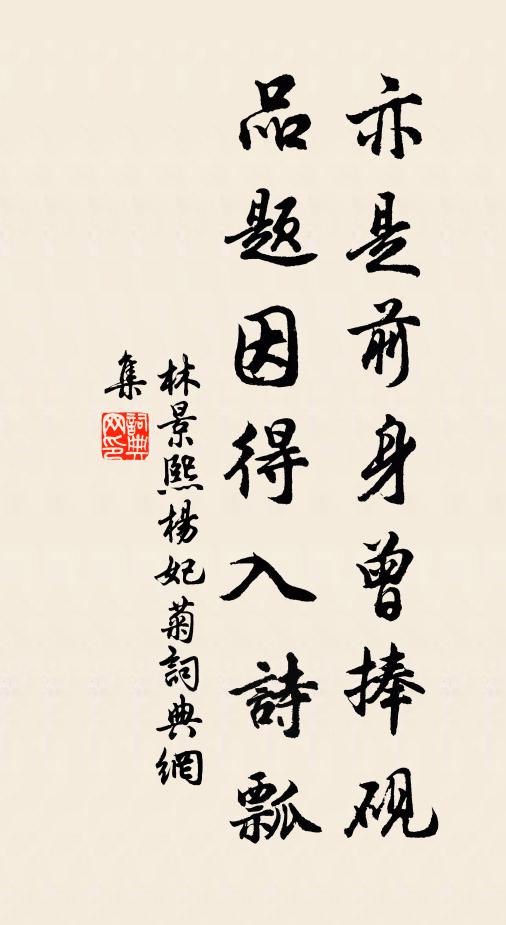 亦是前身曾捧砚
品题因得入詩瓢
林景熙楊妃菊詞典網
集
詞典
网印